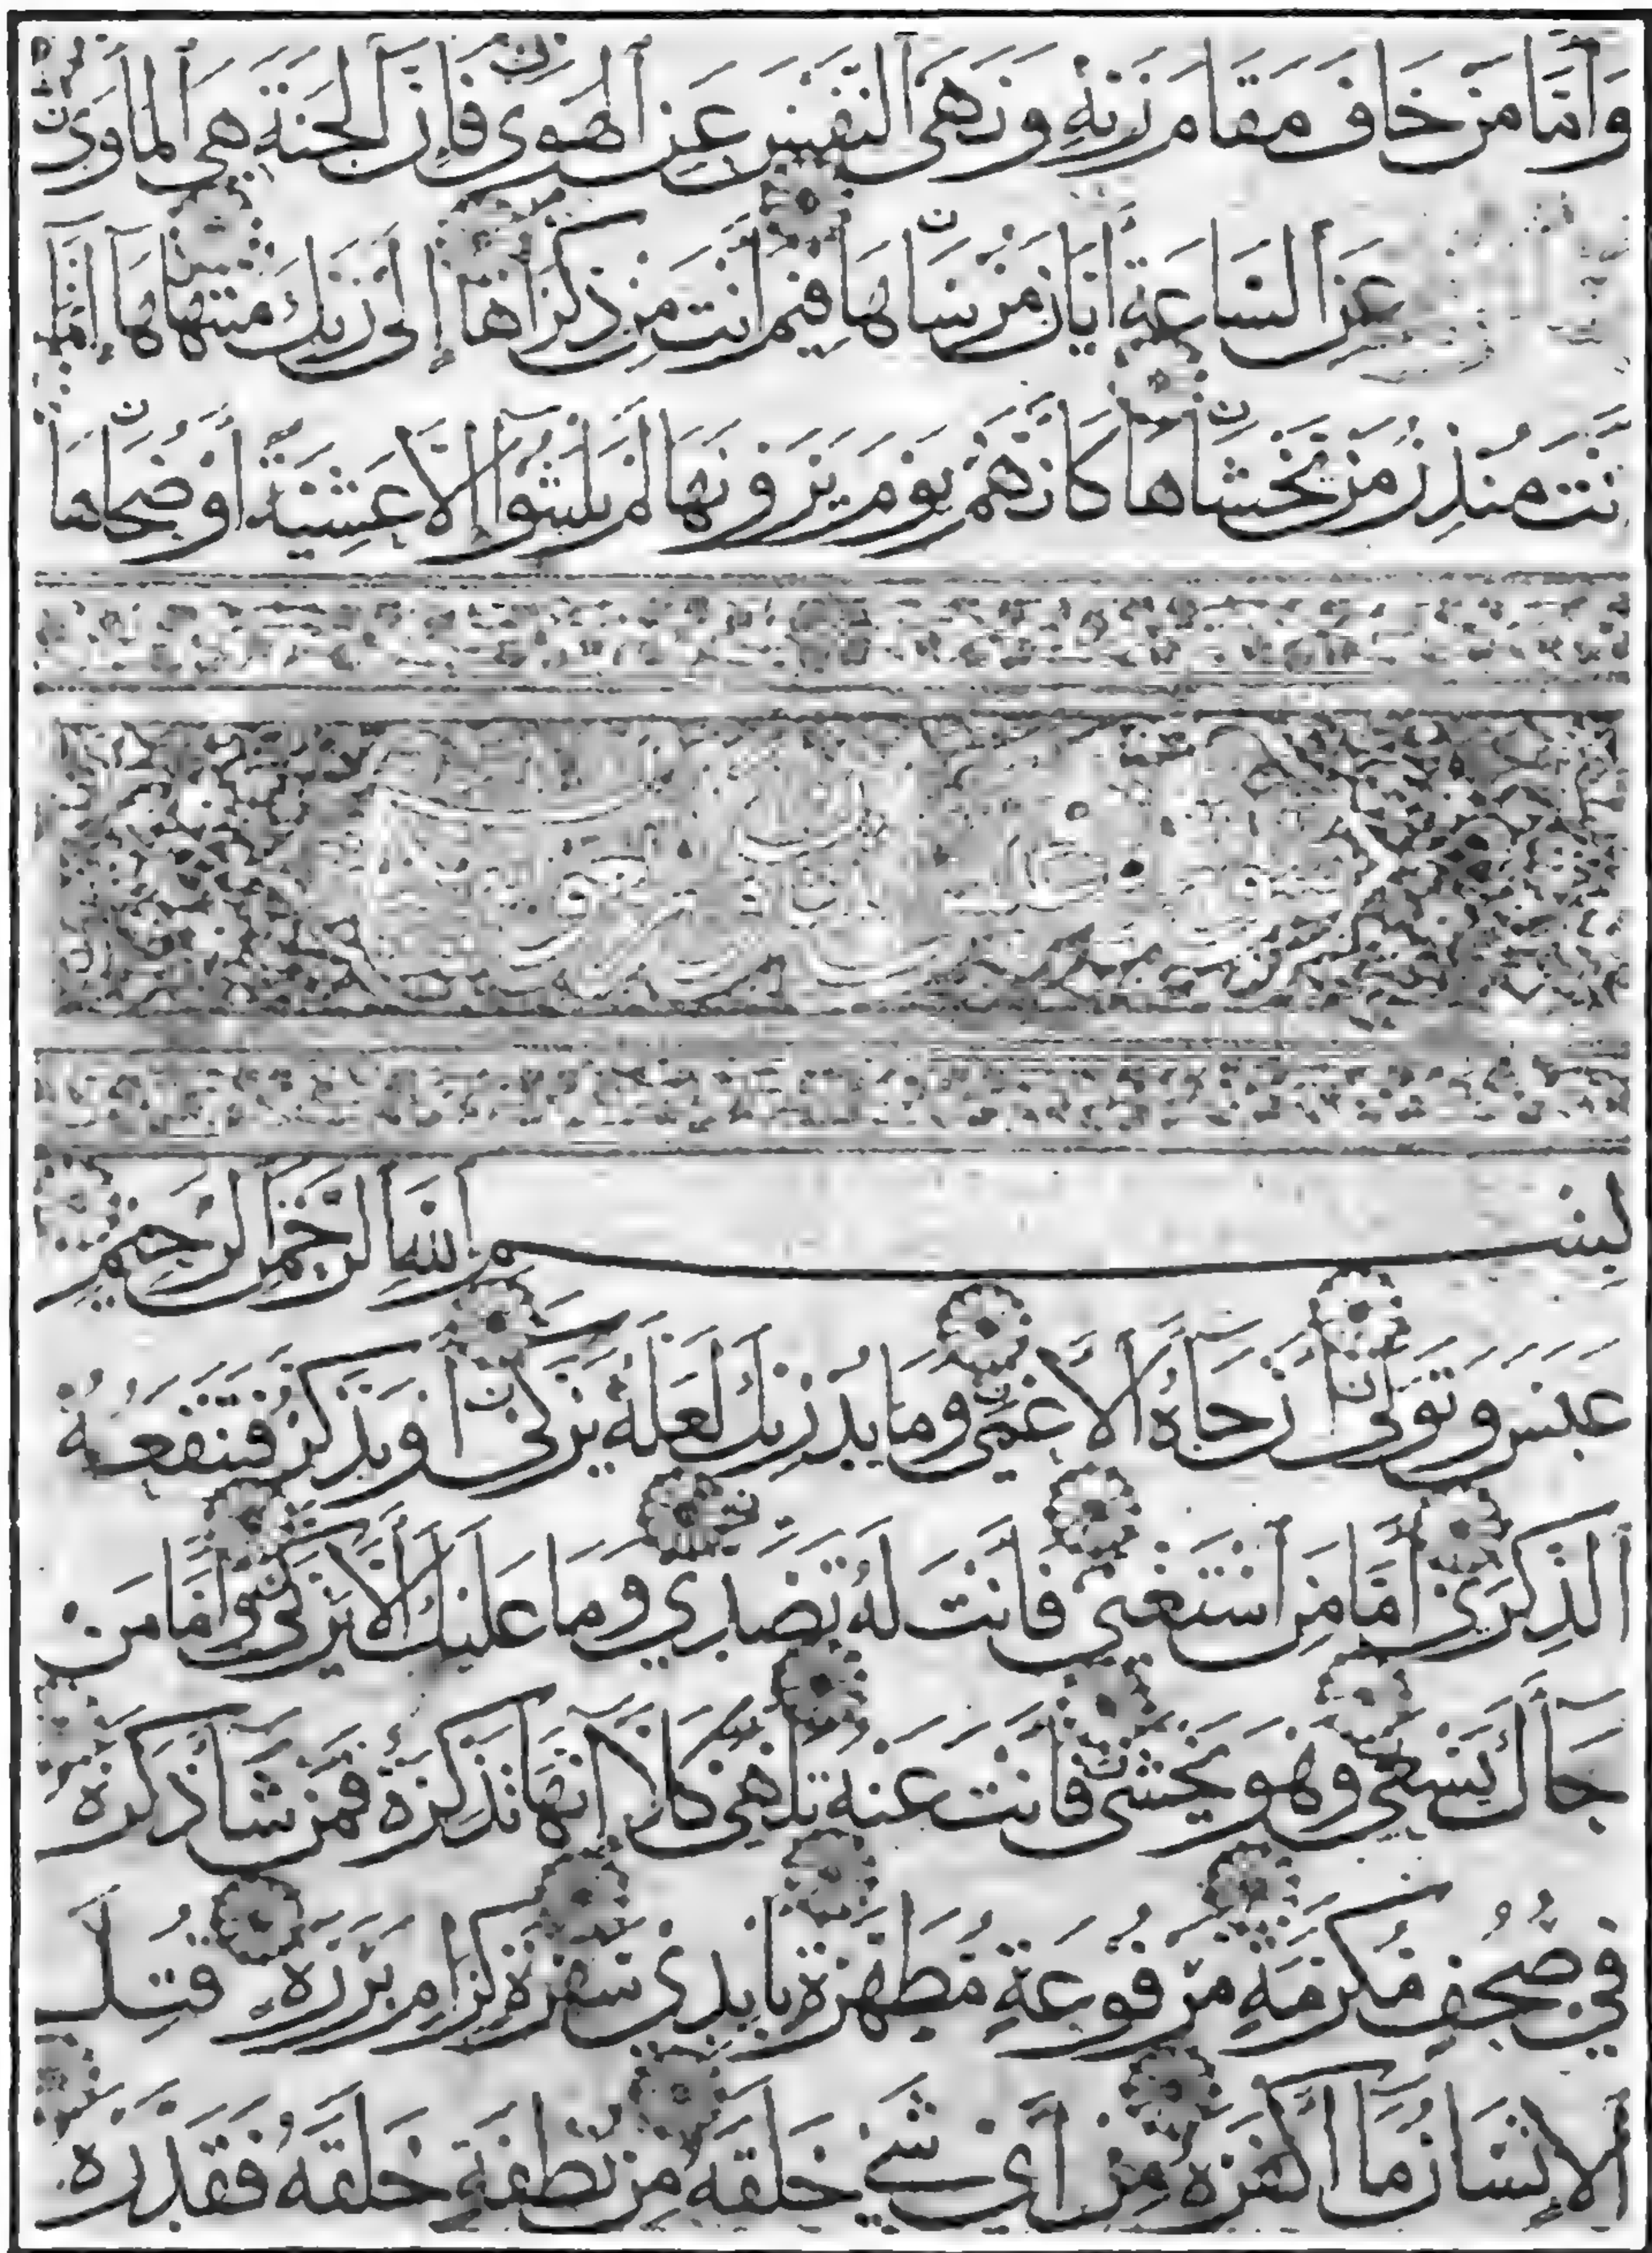 وَأَمَّا مَنْ خَافَ مَقَامَ رَبِّهِ وَنَهَى النَّفْسَ عَنِ الْهَوَى فَإِنَّ الْجَنَّةَ هِيَ الْمَأْوَى
عَنِ السَّاعَةِ أَيَّانَ مُرْسَاهَا فِيمَ أَنْتَ مِنْ ذِكْرَاهَا إِلَى رَبِّكَ مُنْتَهَاهَا إِنَّمَا
أَنْتَ مُنْذِرُ مَنْ يَخْشَاهَا كَأَنَّهُمْ يَوْمَ يَرَوْنَهَا لَمْ يَلْبَثُوا إِلَّا عَشِيَّةً أَوْ ضُحَاهَا
بِسْمِ اللَّهِ الرَّحْمَنِ الرَّحِيمِ
عَبَسَ وَتَوَلَّى أَنْ جَاهُ الْأَعْمَى وَمَا يُدْرِيكَ لَعَلَّهُ يَزَّكَّى أَوْ يَذَّكَّرُ فَتَنْفَعُهُ
الذِّكْرَى أَمَّا مَنِ اسْتَغْنَى فَأَنْتَ لَهُ تَصَدَّى وَمَا عَلَيْكَ أَلَّا يَزَّكَّى وَأَمَّا مَنْ
جَاكَ يَسْعَى وَهُوَ يَخْشَى فَأَنْتَ عَنْهُ تَلَهَّى كَلَّا إِنَّهَا تَذْكِرَةٌ فَمَنْ شَا ذَكَرَهُ
فِي صُحُفٍ مُكَرَّمَةٍ مَرْفُوعَةٍ مُطَهَّرَةٍ بِأَيْدِي سَفَرَةٍ كِرَامٍ بَرَرَةٍ قُتِلَ
الْإِنْسَانُ مَا أَكْفَرَهُ مِنْ أَيِّ شَيْءٍ خَلَقَهُ مِنْ نُطْفَةٍ خَلَقَهُ فَقَدَّرَهُ